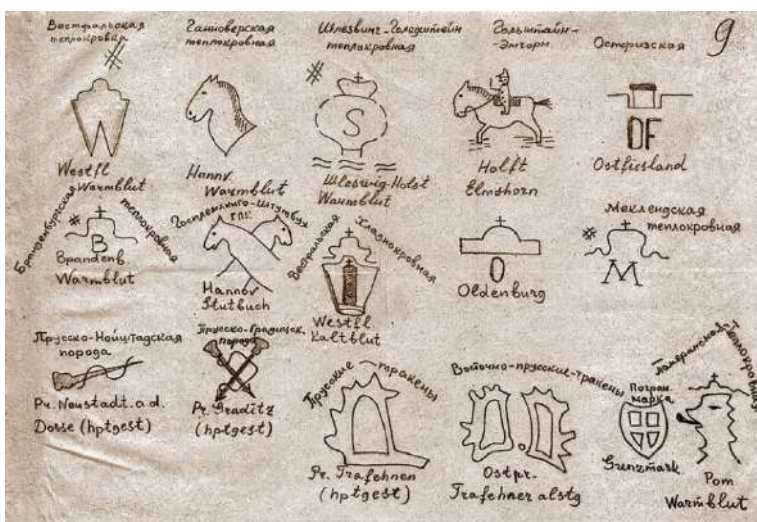 Вестфальская
теплокровная
Westfl
Warmblut
Ганноверская
теплокровная
Hannv
Warmblut
Шлезвинг-Голштейн
теплокровная
S
Шleswig-Holst
Warmblut
Гольштайн-
Элгорн
Holft
Elmshorn
Остфризская
OF
Ostfiesland
9
Бранденбургская
теплокровная
B
Brandenb.
Warmblut
Госплемкига-Штутбух
ГПК
Hannov
Stutbuch
Вестфальская
Хладнокровная
Westfl
Kaltblut
O
Oldenburg
Меклендская
теплокровная
M
Прусско-Нойштадская
порода
Pr. Neustadt. a. d.
Dosse (hptgest)
Прусско-Градицск.
порода
Pr. Graditz
(hptgest)
Прусские-тракены
Pr. Trafehnen
(hptgest)
Восточно-прусские-тракены
Ostpr.
Trafehner alstg
Погран.
марка
Grenzmark
Померанская-
Теплокровная
Pom
Warmblut